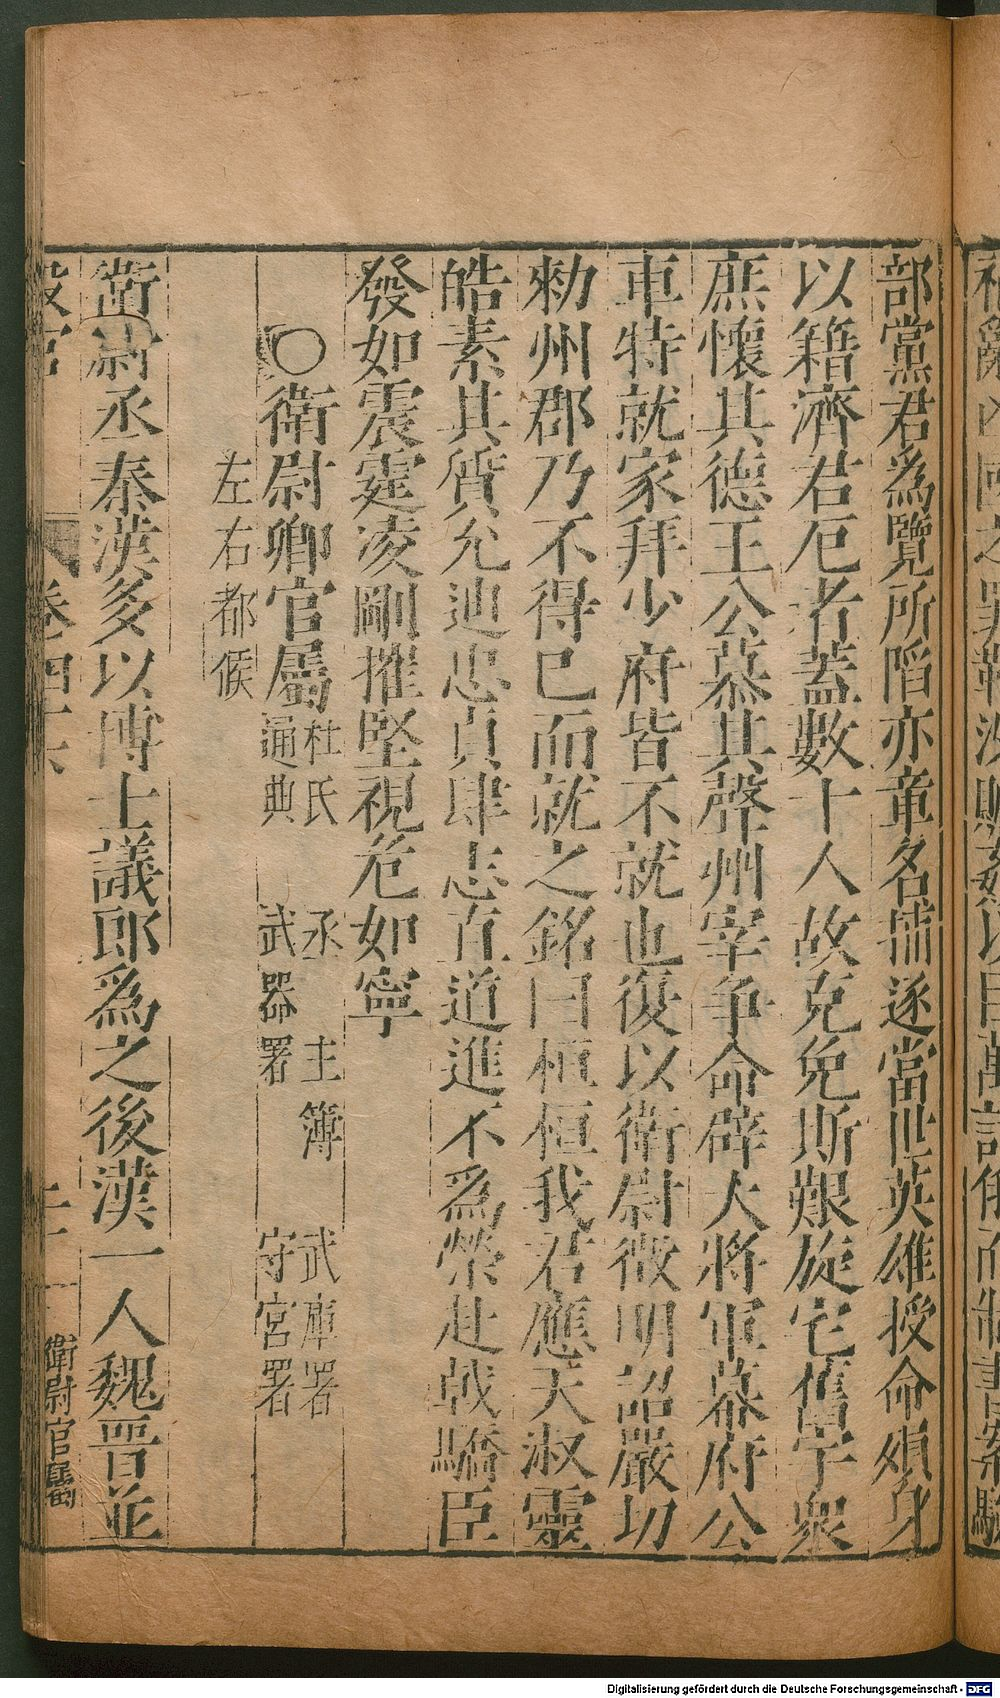 部黨君為覽所陷亦章名捕逐當世英雄授命殞身
以籍濟君厄者蓋數十人故克免斯艱旋宅舊宇衆
庶懷其德王公慕其聲州宰争命辟大將軍幕府公
車特就家拜少府皆不就也復以衛尉徵明詔嚴切
勑州郡乃不得已而就之銘曰桓桓我君應天淑靈
皓素其質允迪忠貞肆志直道進不爲榮赴戟驕臣
發如震霆凌剛摧堅視危如寧
〇衛尉卿官屬 杜氏通典
丞 主簿 武庫署
武器署 守宮署
左右都候
衛尉丞秦漢多以博士議郎爲之後漢一人魏晉並
衛尉官屬
Digitalisierung gefördert durch die Deutsche Forschungsgemeinschaft - DFG